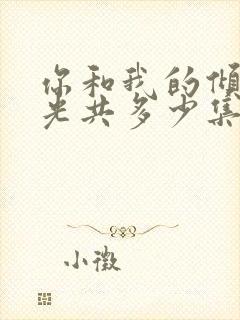 你和我的倾
光共多少集
小微